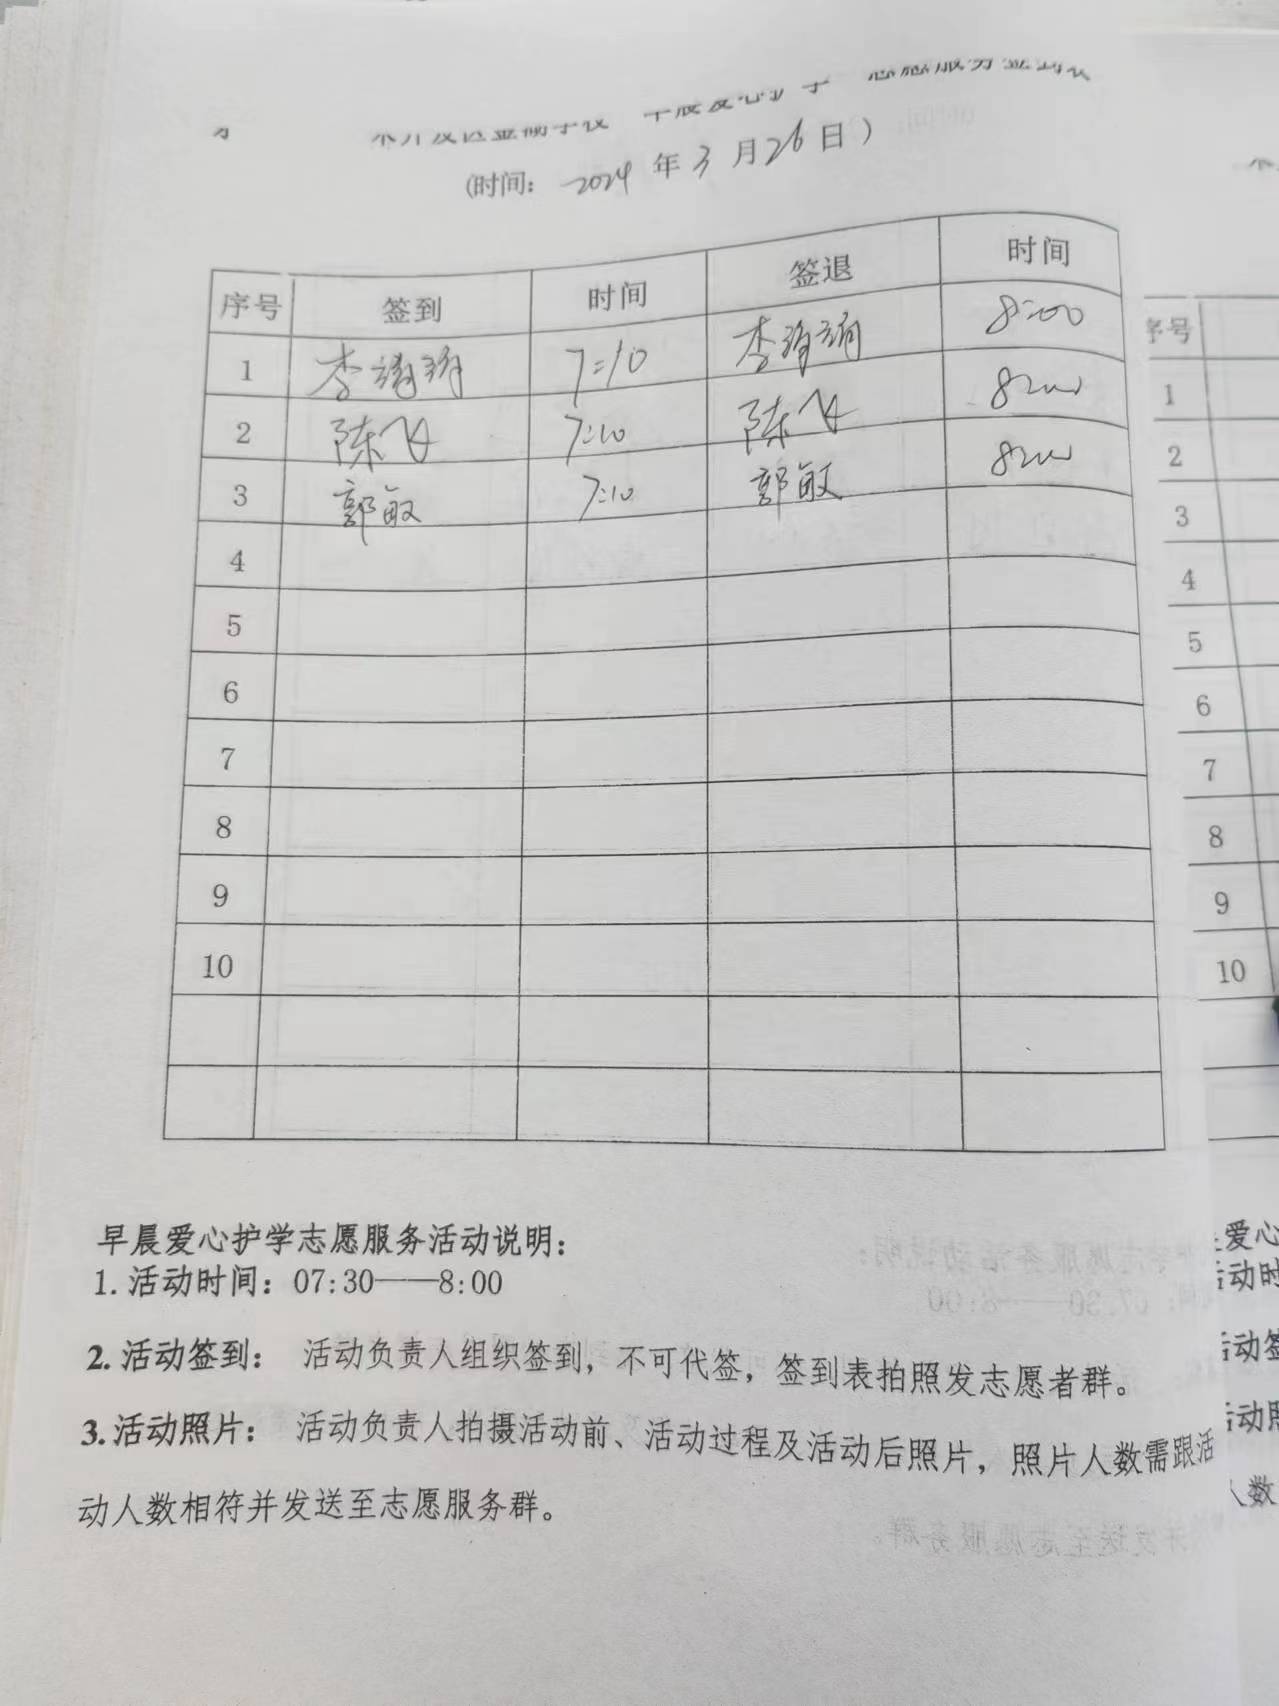 (时间: 2024 年 3 月 26 日)
序号 签到 时间 签退 时间
1 李 7:10 李 8:00
2 陈飞 7:10 陈飞 8:00
3 郭敏 7:10 郭敏 8:00
4
5
6
7
8
9
10
早晨爱心护学志愿服务活动说明:
1. 活动时间: 07:30——8:00
2. 活动签到: 活动负责人组织签到, 不可代签, 签到表拍照发志愿者群。
3. 活动照片: 活动负责人拍摄活动前、活动过程及活动后照片, 照片人数需跟活
动人数相符并发送至志愿服务群。
序号
1
2
3
4
5
6
7
8
9
10
爱心
动时
动签
动照
人数